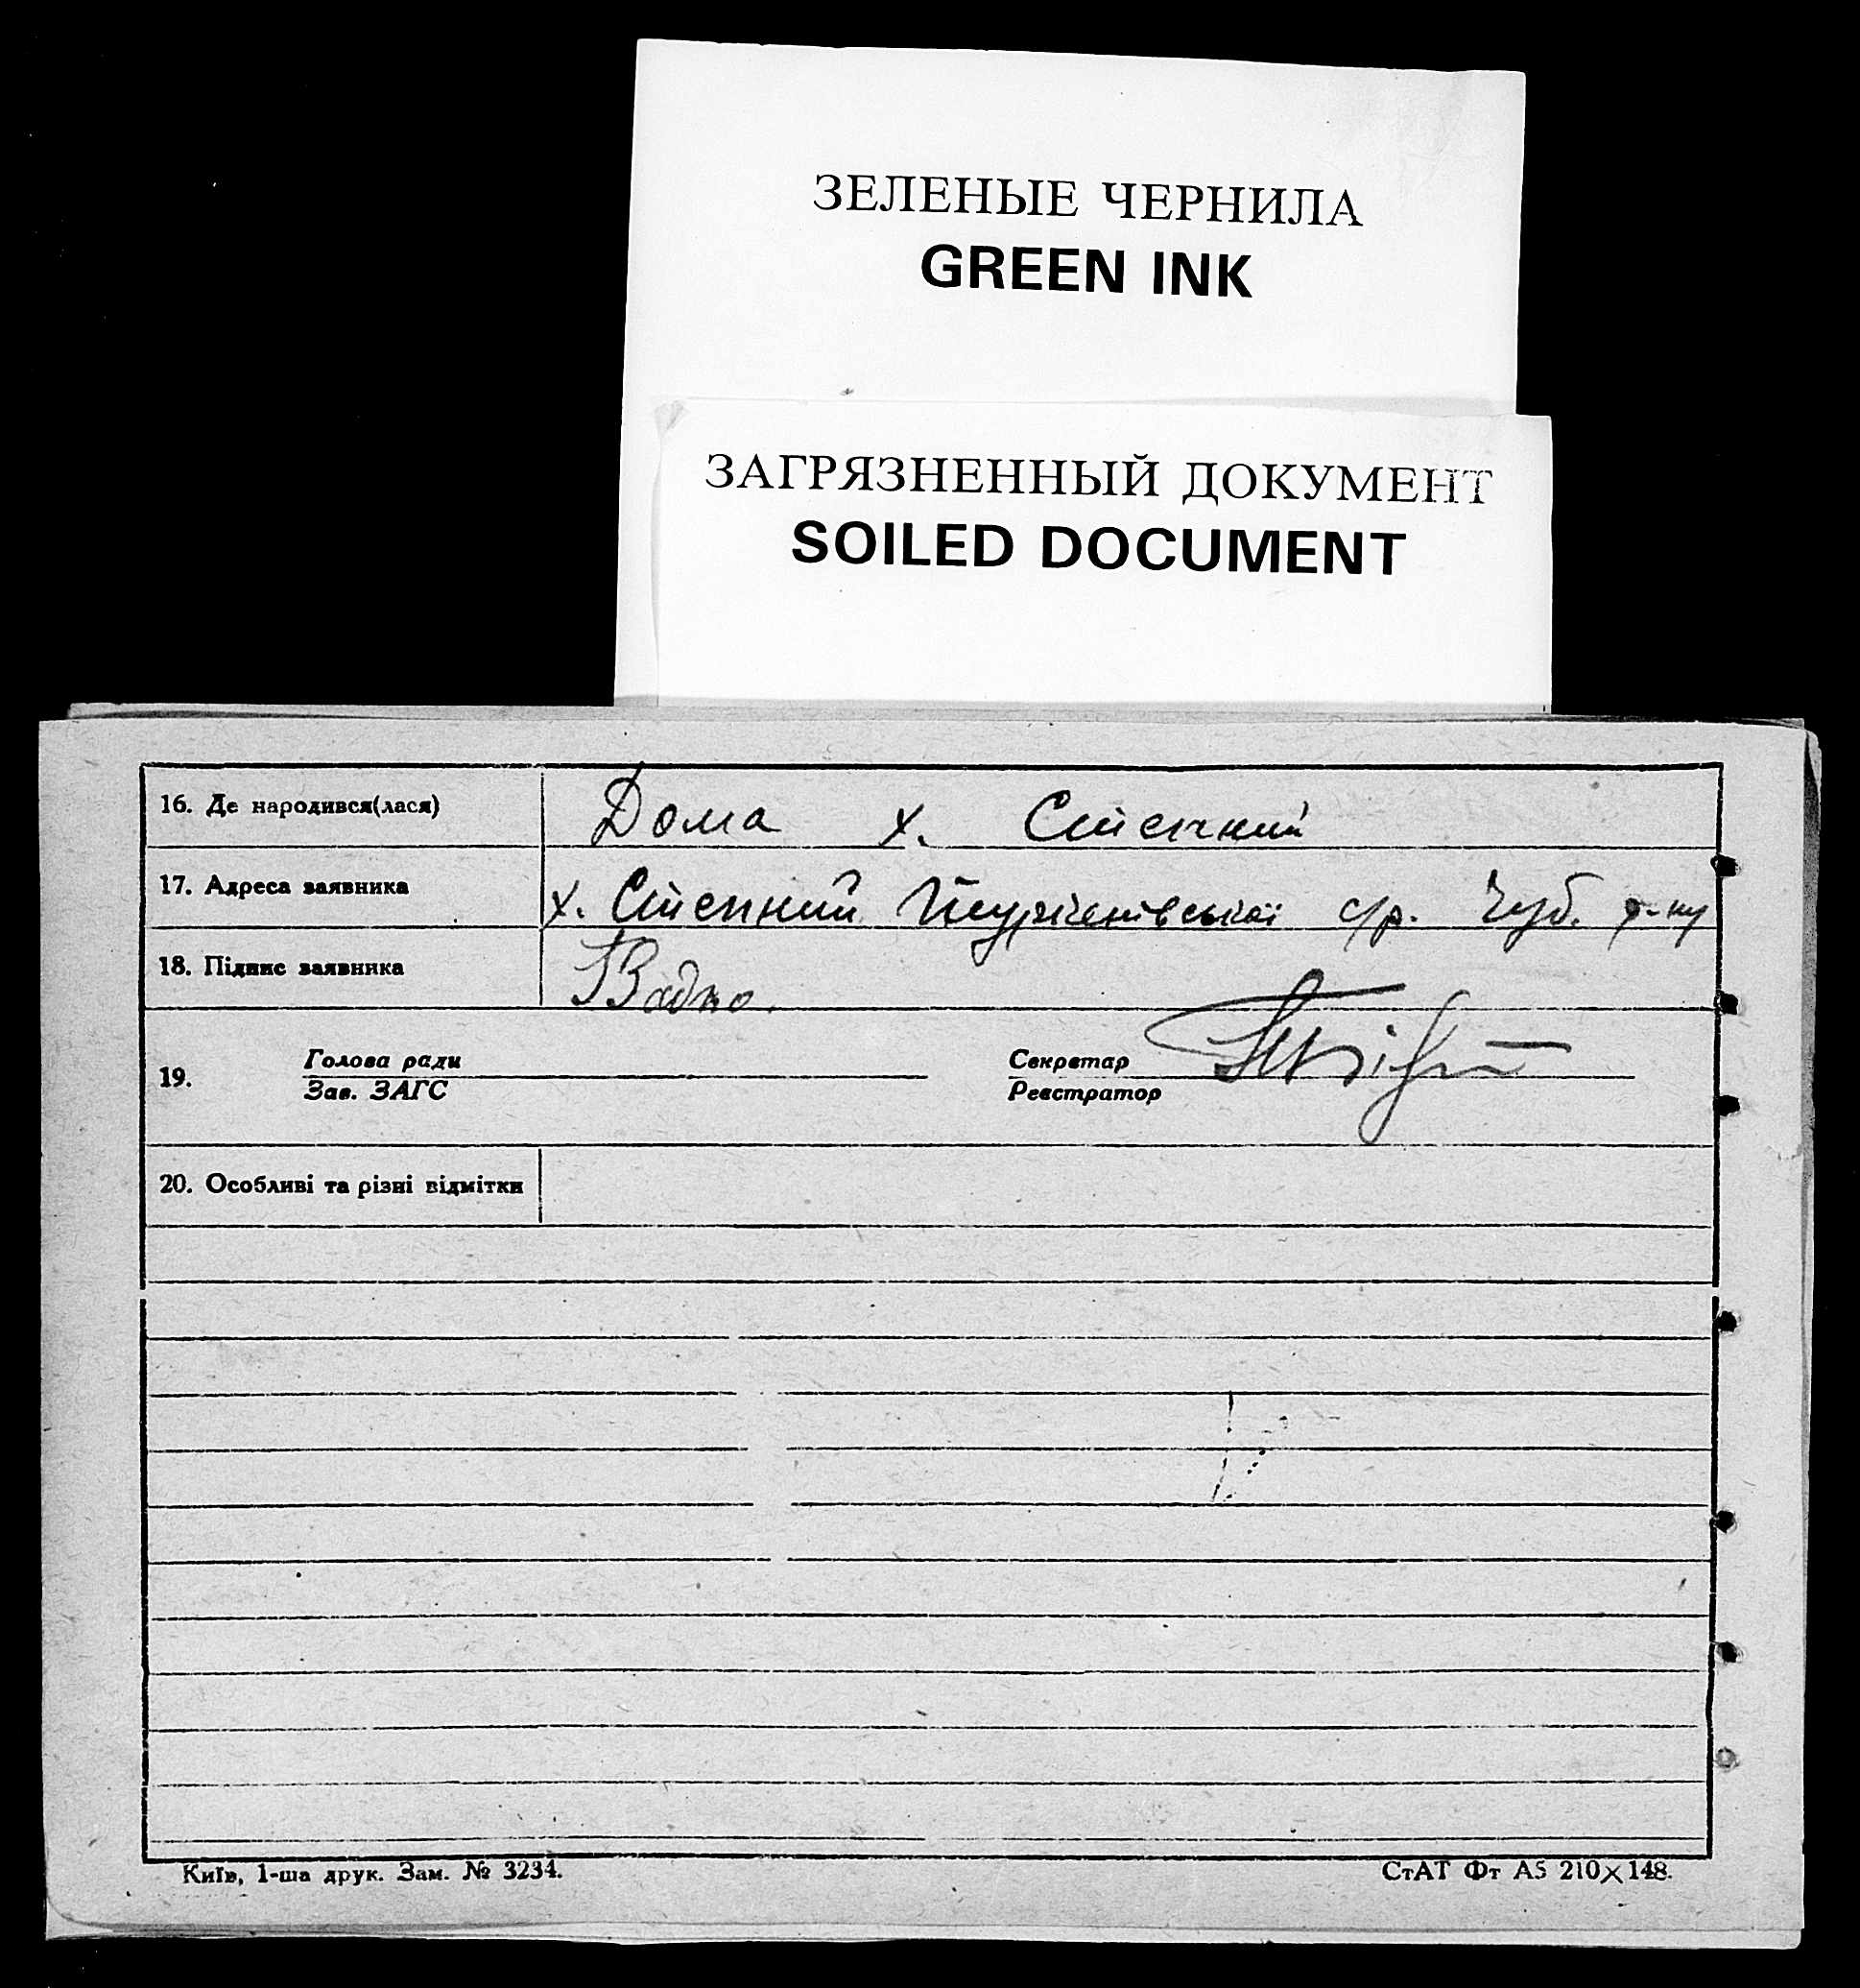 ЗЕЛЕНЫЕ ЧЕРНИЛА
GREEN INK
ЗАГРЯЗНЕННЫЙ ДОКУМЕНТ
SOILED DOCUMENT
16. Де народився(лася) Дома х. Степний
17. Адреса заявника х. Степний с/р. Чуб. р-ну
18. Підпис заявника
19. Голова ради Секретар
Зав. ЗАГС Реєстратор
20. Особливі та різні відмітки
Київ, 1-ша друк. Зам. № 3234. СтАТ Фт А5 210×148.